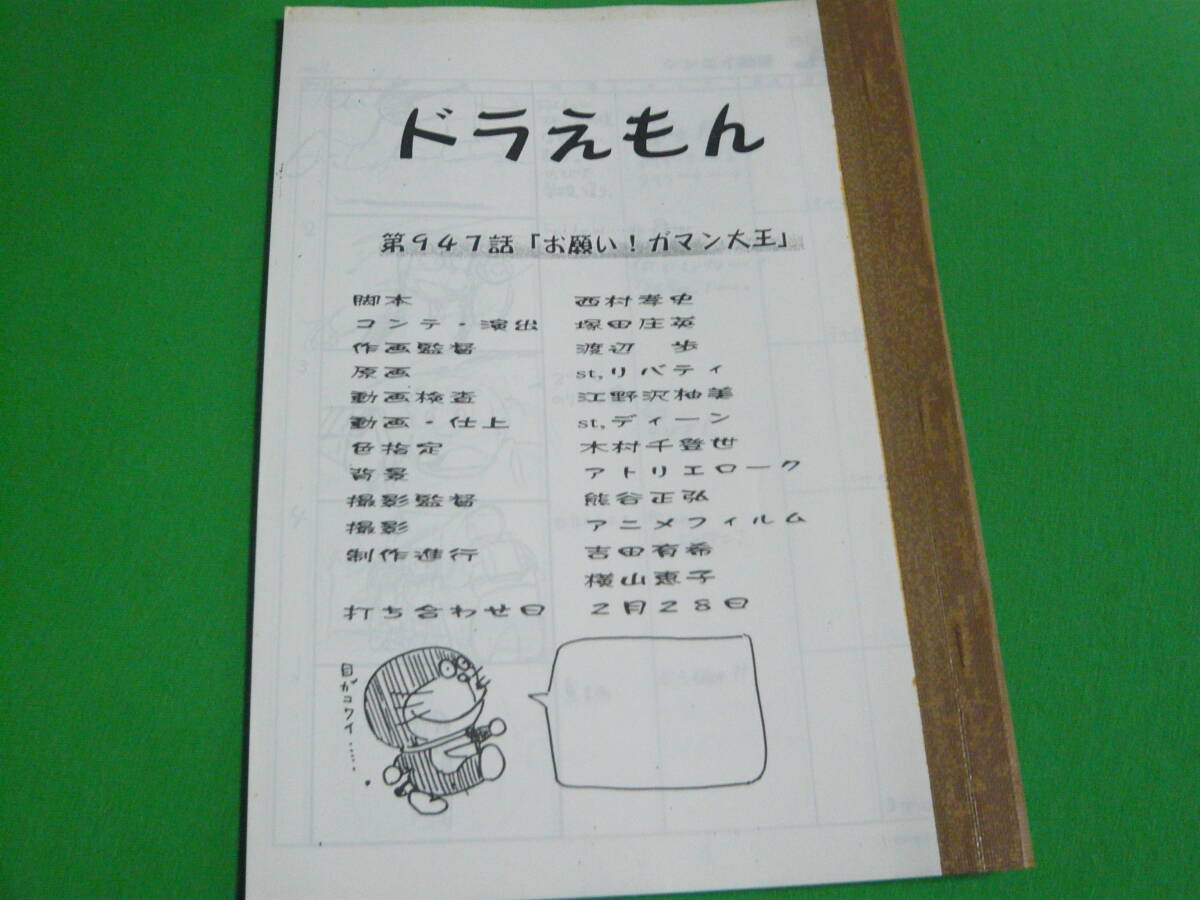 ドラえもん
第947話「お願い!ガマン大王」
脚本 西村孝史
コンテ・演出 塚田庄英
作画監督 渡辺 歩
原画 st,リバティ
動画検査 江野沢柚美
動画・仕上 st,ディーン
色指定 木村千登世
背景 アトリエローク
撮影監督 熊谷正弘
撮影 アニメフィルム
制作進行 吉田有希
横山恵子
打ち合わせ日 2月28日
目がコワイ……。